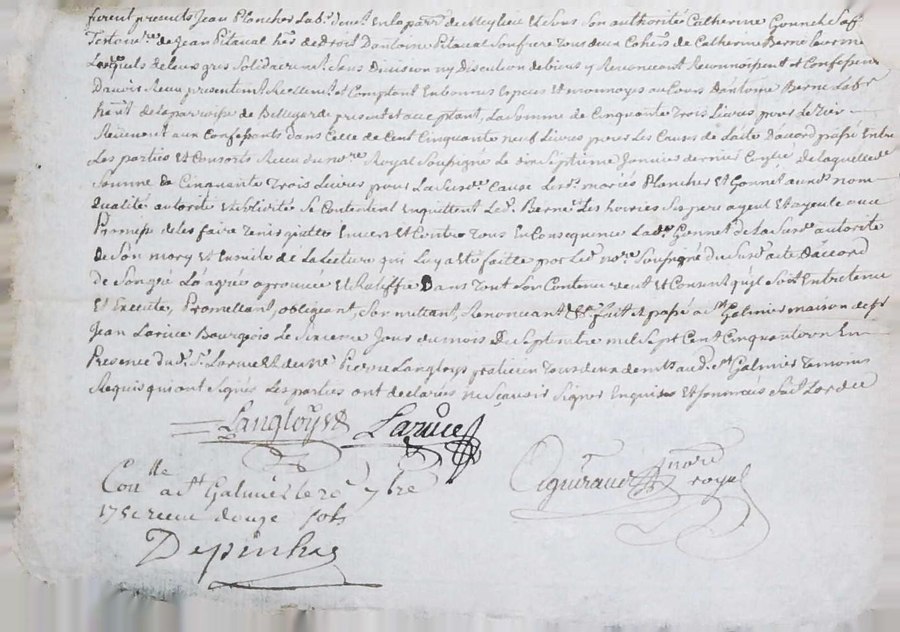 furent presents Jean Plancher Lab.r dem.t En la parr.e de Meylieu Et sous Son authorité Catherine Gonnet Sa f.e
de Jean Pitaval her.s de Droit D'antoine Pitaval tous deux Coher.s de Catherine Berne
Lesquels de leur gré Solidairem.t Sans Division ny Discution de biens y Renonceant Reconnoissent et Confessent
D'avoir Receu presentem.t Reellem.t et Comptant En bonnes Especes et monnoyes au Cours D'antoine Berne Lab.r
hab.t de la parroisse de Bellegarde present et acceptant, La Somme de Cinquante Trois Livres pour
aux Confessants dans Celle de Cent Cinquante neuf Livres pour Les Causes de Lacte D'accord passé Entre
Les parties Et Consorts Receu du no.re Royal Soussigné Le dix Septieme Janvier dernier de laquelle
Somme de Cinquante Trois Livres pour La Susd.e Cause Les d. mariés Plancher Et Gonnet aux d. nom
qualité autorité Et Solidité Se Contentent En quittent Led. Berne Les hoiries de Ses pere ayeul Et ayeule avec
Promesse de Les faire Tenir quittes Envers Et Contre Tous En Consequence Lad. Gonnet de La Susd. autorité
de Son mary Et Ensuite de La Lecture qui Luy a Eté faitte par Led. no.re Soussigné du Susd. acte D'accord
de Son gré L'a agréé aprouvé Et Ratiffié Dans Tout Son Contenu veut Et Consent qu'il Soit Entretenu
Et Executé, Promettant, obligeant, Soumettant, Renonceant &c. fait Et passé a S.t Galmier maison de S.r
Jean Larüe Bourgeois Le Sixieme Jour du mois De Septembre mil Sept Cent Cinquante un En
Presence dud. S.r Larue Et de M.re Pierre Langloys praticien Tous deux dem.ts aud. S.t Galmier Temoins
Requis qui ont Signés Les parties ont declarées ne Sçavoir Signer Enquises Et Sommées
Langloys Larüe
no.re
royal
Con.lle a S.t Galmier le 20.e 7bre
1751 receu douze sols